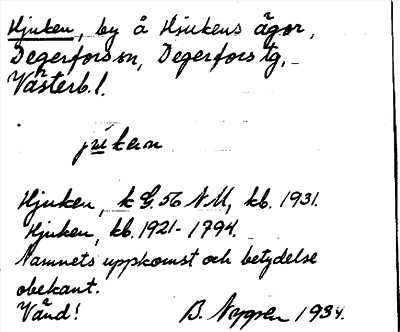 Hjuken, by å Hjukens ägor,
Degerfors sn, Degerfors tg,
Västerb. l.
Hjuken, k G. 56 NU, kb. 1931.
Hjuken, kb. 1921-1794.
Namnets uppkomst och betydelse
obekant.
Vänd! B. 1934.